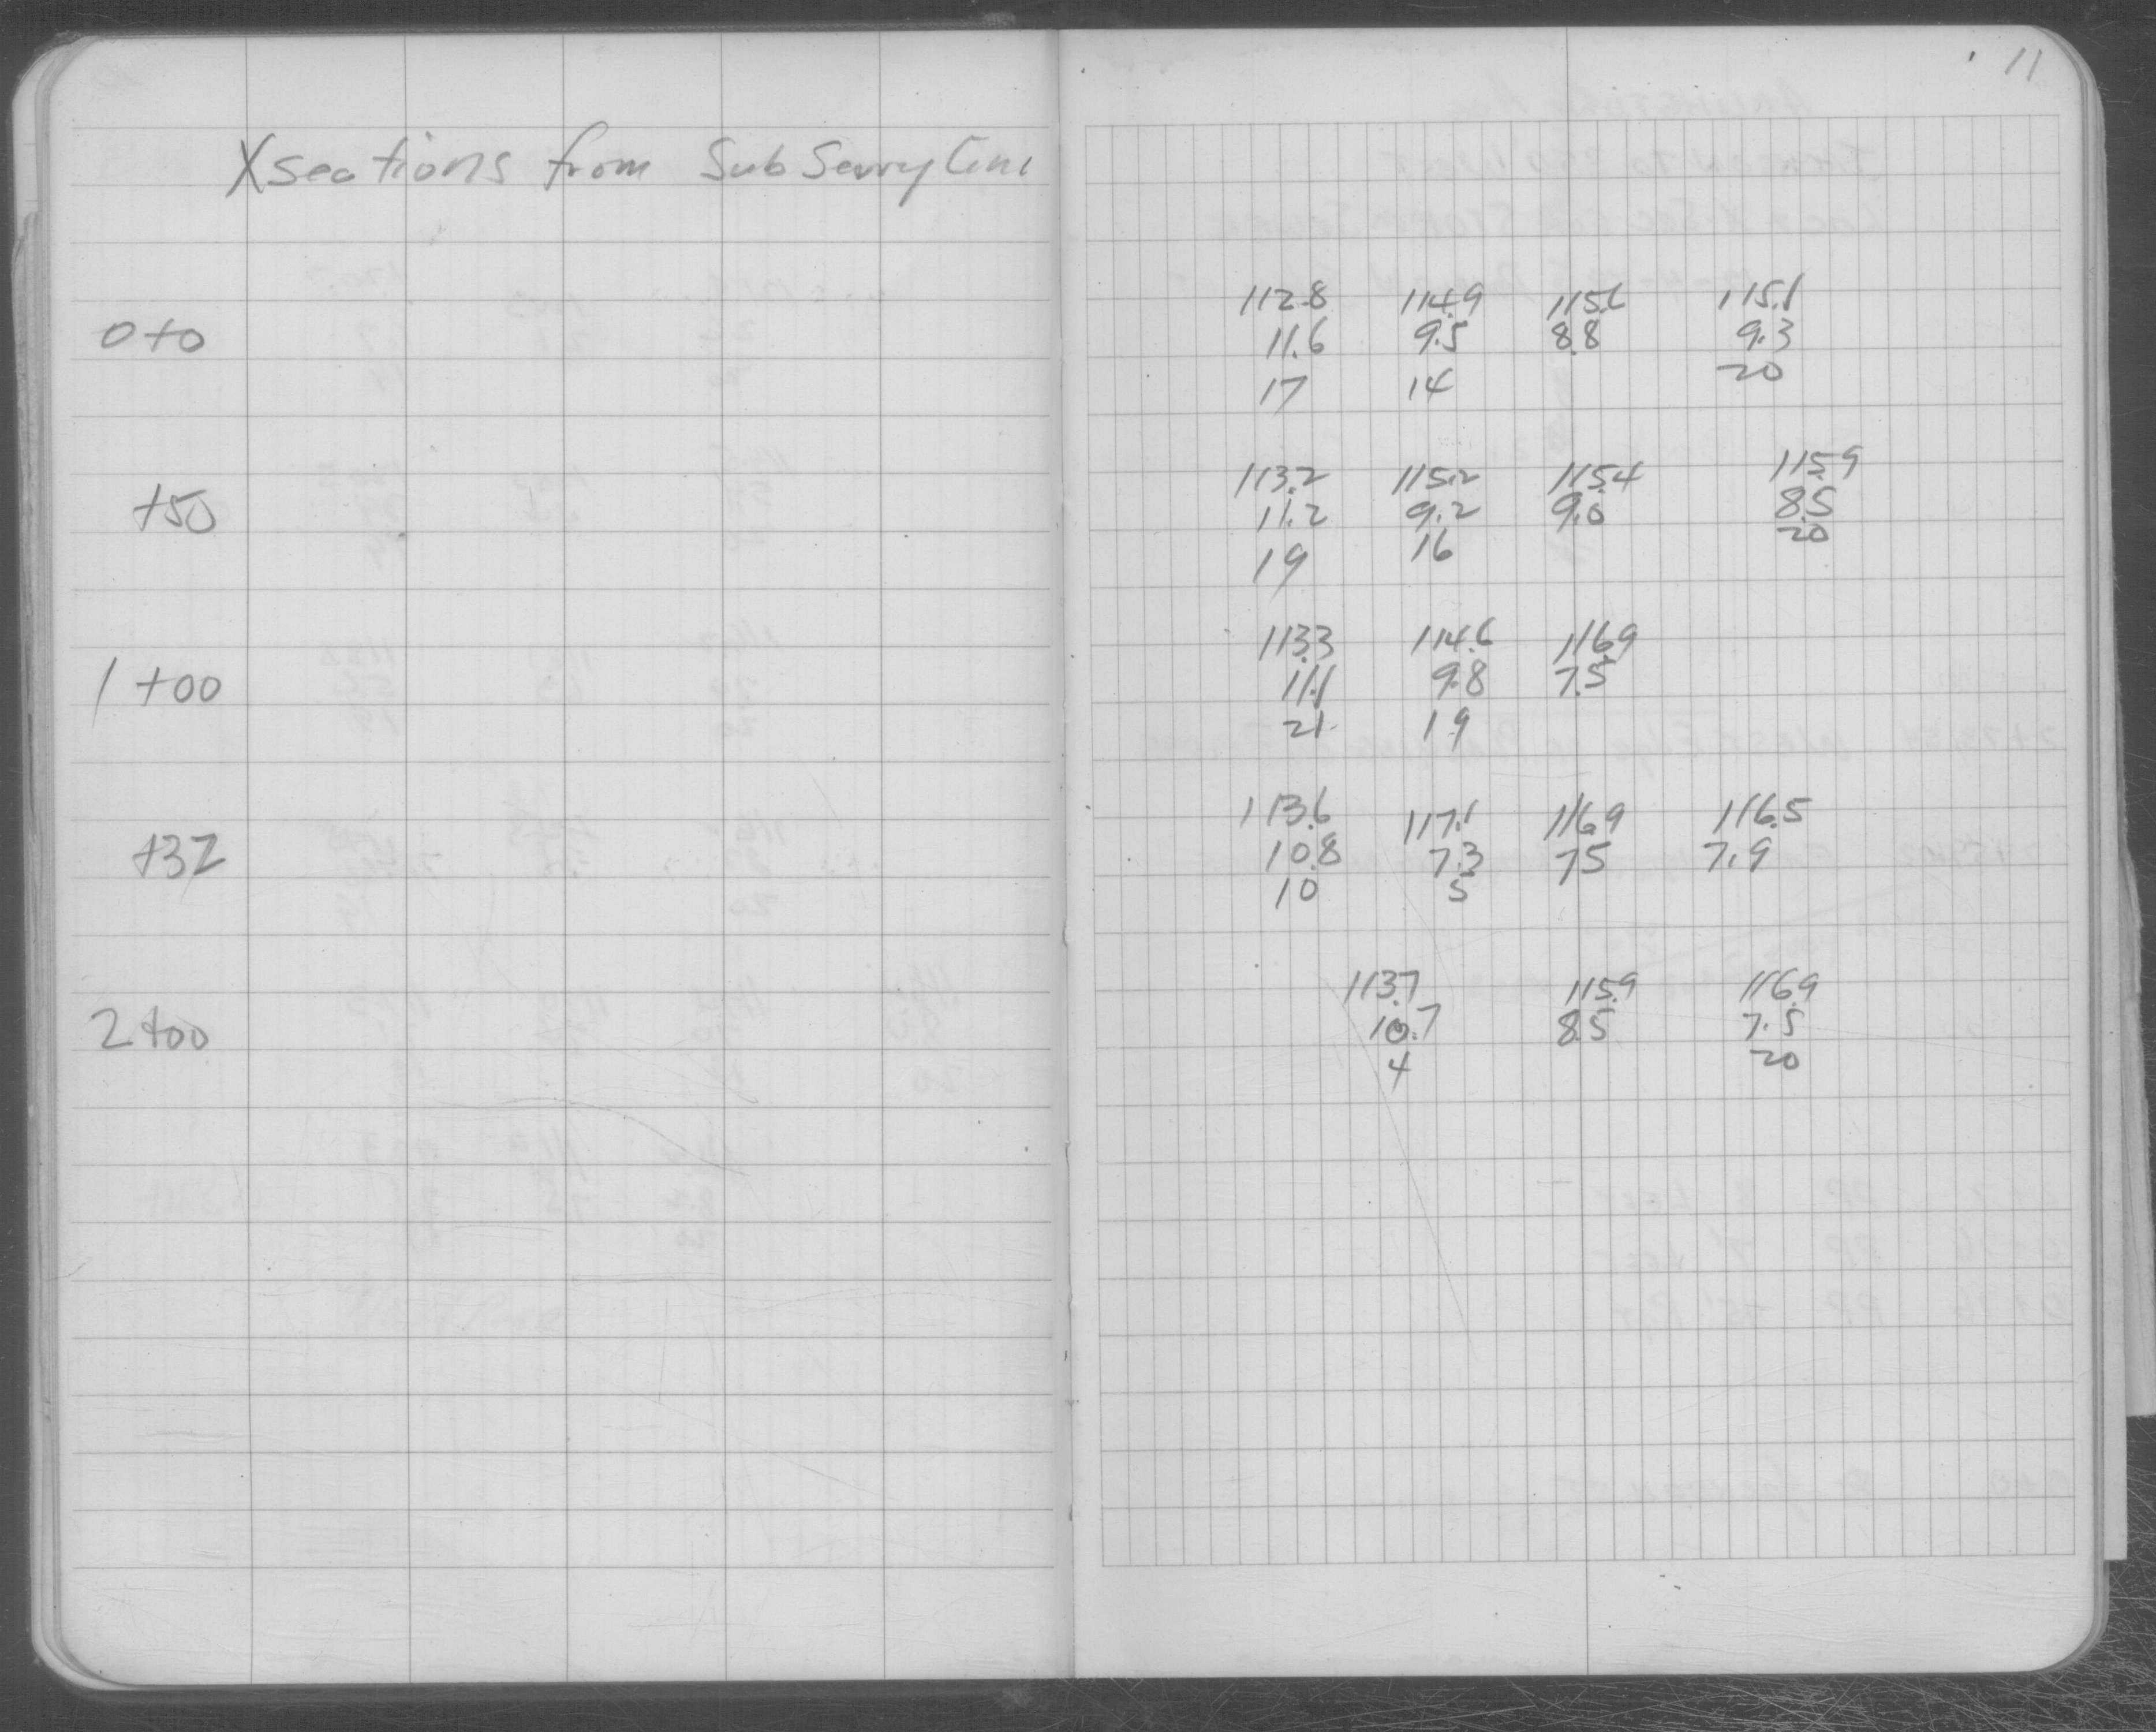 11
Xsections from Sub Survy Line
112.8 114.9 115.6 115.1
0+0 11.6 9.5 8.8 9.3
17 14 20
113.2 115.2 115.4 115.9
+50 11.2 9.2 9.0 8.5
19 16 20
113.3 114.6 116.9
1+00 11.1 9.8 7.5
21 19
113.6 117.1 116.9 116.5
+37 10.8 7.3 7.5 7.9
10 5
113.7 115.9 116.9
2+00 10.7 8.5 7.5
4 20